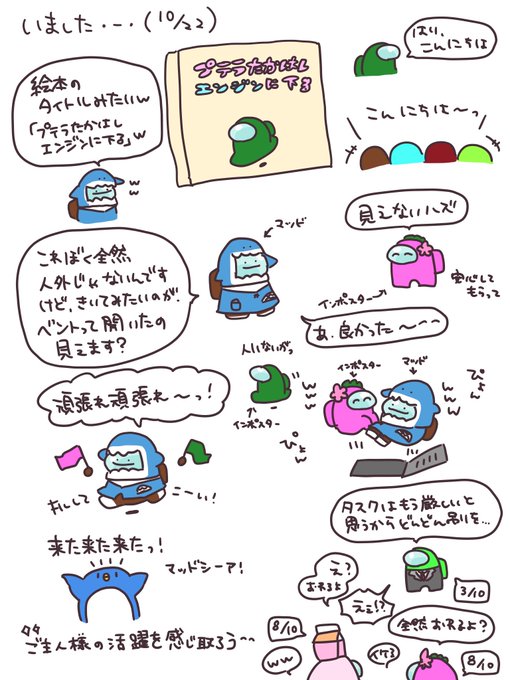 いました・-・(10/22)
はい、
こんにちは
絵本の
タイトルみたいw
「プテラたかはし
エンジンに下る」w
ww
プテラたかはし
エンジンに下る
こんにちは〜っ
見えないハズ
インポスター
安心して
もらって
マッド
これぼく全然
人外じゃないんです
けど、きいてみたいのが、
ベントって開いたの
見えます?
あ、良かった〜〜
人いないがっ
インポスター
ぴょん
www
インポスター
マッド
ぴょん
www
頑張れ頑張れ〜っ!
おいして
こーい!
タスクはもう厳しいと
思うからどんどん吊りを…
3/10
来た来た来たっ!
マッドシーア!
ご主人様の活躍を感じ取ろう〜
え?
おわるよ
えぇ!?
8/10
ww
イケる
全然おわるよ?
8/10